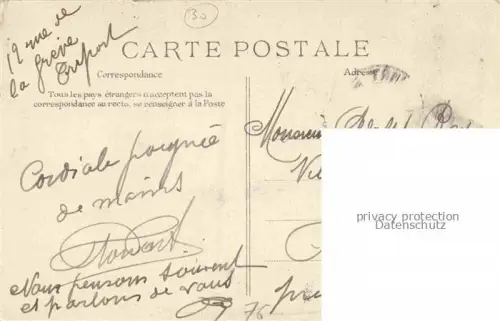 19 rue de
la grève
Tréport
30
CARTE POSTALE
Correspondance
Adresse
Tous les pays étrangers n'acceptent pas la
correspondance au recto, se renseigner à la Poste
Cordiale poignée
de mains
Nous pensons souvent
et parlons de vous
76
Monsieur
privacy protection
Datenschutz